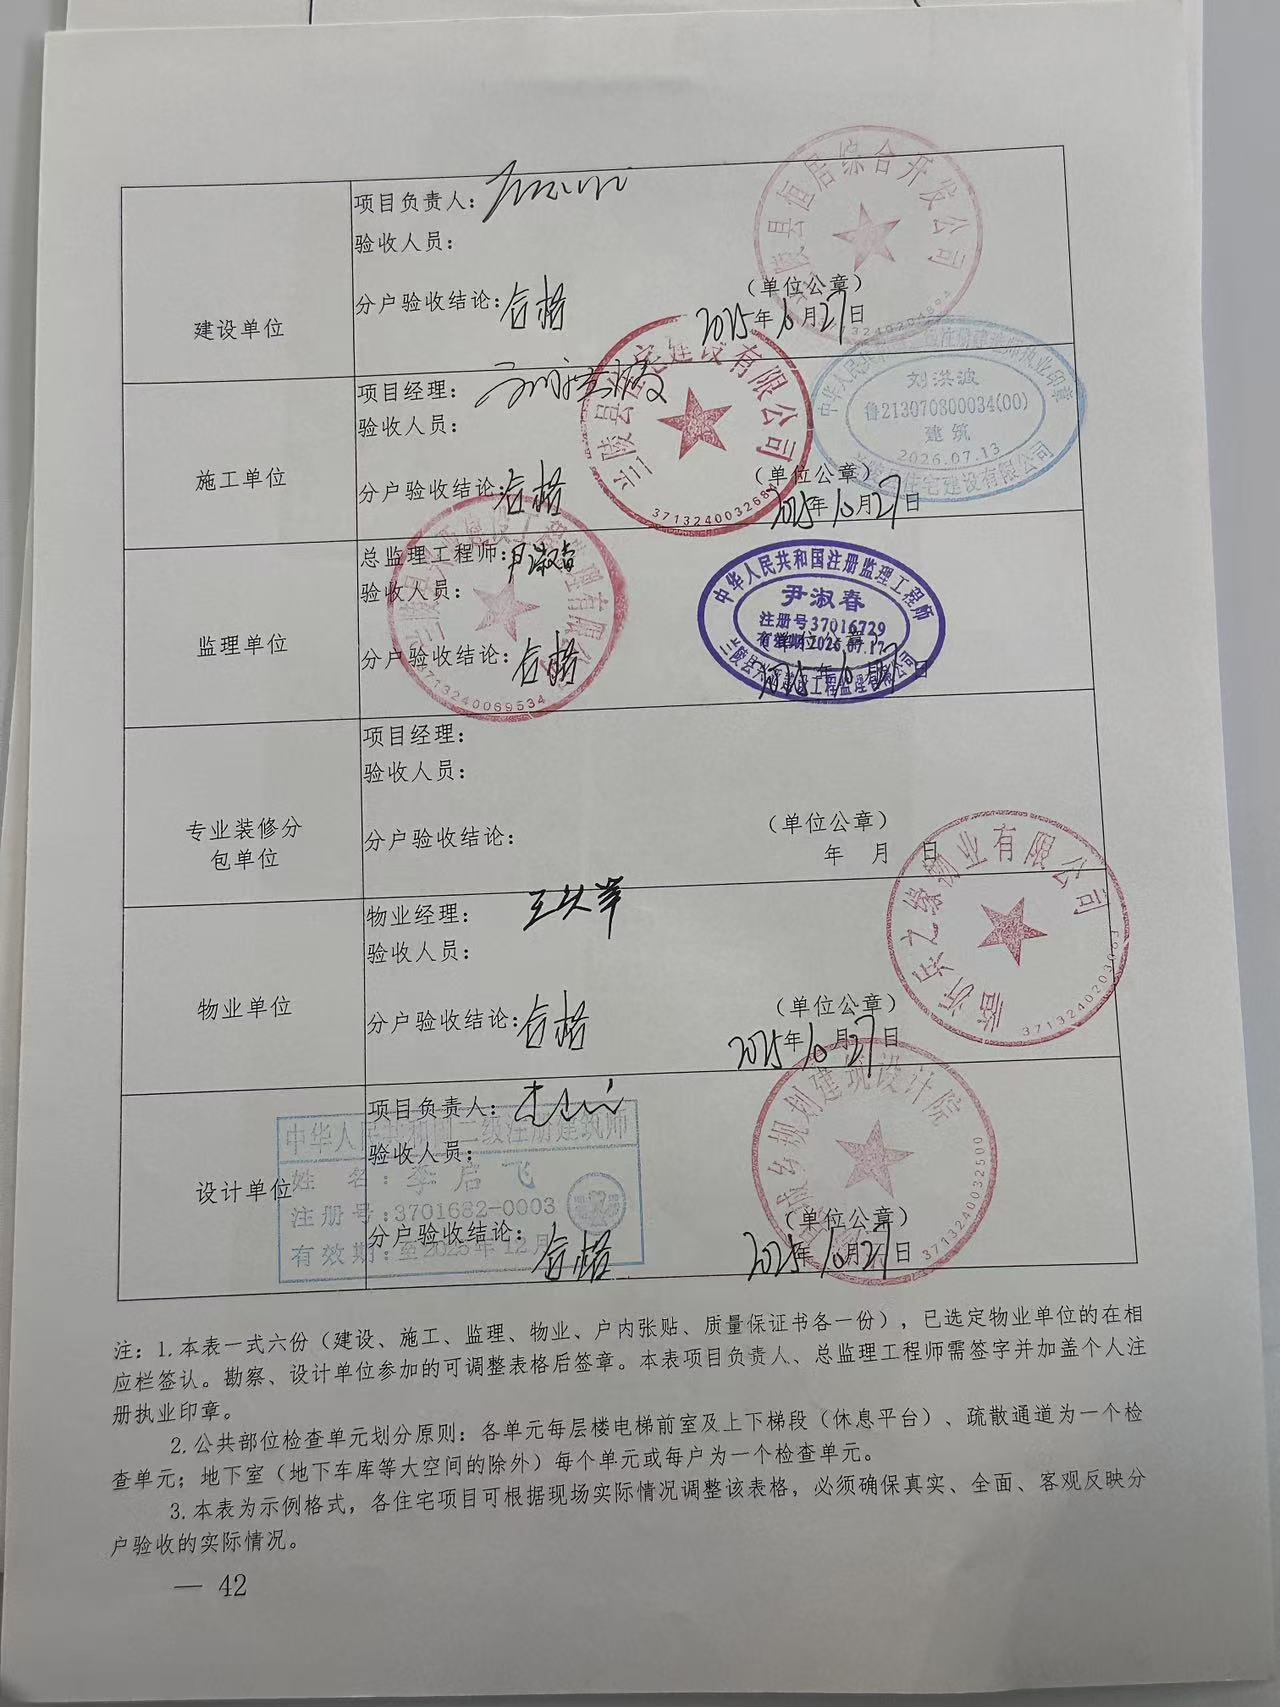 建设单位
项目负责人：
验收人员：
分户验收结论：合格
（单位公章）
2025年10月27日
陵县恒居综合开发公司
3713240204894
施工单位
项目经理：
验收人员：
分户验收结论：合格
（单位公章）
2025年10月27日
兰陵县住宅建设有限公司
3713240032684
刘洪波
鲁213070800034(00)
建筑
2026.07.13
监理单位
总监理工程师：尹淑春
验收人员：
分户验收结论：合格
（单位公章）
2025年10月27日
3713240069534
中华人民共和国注册监理工程师
尹淑春
注册号37016729
有效期2026.07.17
专业装修分
包单位
项目经理：
验收人员：
分户验收结论：
（单位公章）
年 月 日
物业单位
物业经理：
验收人员：
分户验收结论：合格
（单位公章）
2025年10月27日
临沂兵之缘物业有限公司
3713240203063
设计单位
项目负责人：
验收人员：
分户验收结论：合格
（单位公章）
2025年10月27日
城乡规划建筑设计院
3713240032500
中华人民共和国二级注册建筑师
姓 名：李启飞
注册号：3701682-0003
有效期：至2025年12月
注：1.本表一式六份（建设、施工、监理、物业、户内张贴、质量保证书各一份），已选定物业单位的在相
应栏签认。勘察、设计单位参加的可调整表格后签章。本表项目负责人、总监理工程师需签字并加盖个人注
册执业印章。
2.公共部位检查单元划分原则：各单元每层楼电梯前室及上下梯段（休息平台）、疏散通道为一个检
查单元；地下室（地下车库等大空间的除外）每个单元或每户为一个检查单元。
3.本表为示例格式，各住宅项目可根据现场实际情况调整该表格，必须确保真实、全面、客观反映分
户验收的实际情况。
— 42